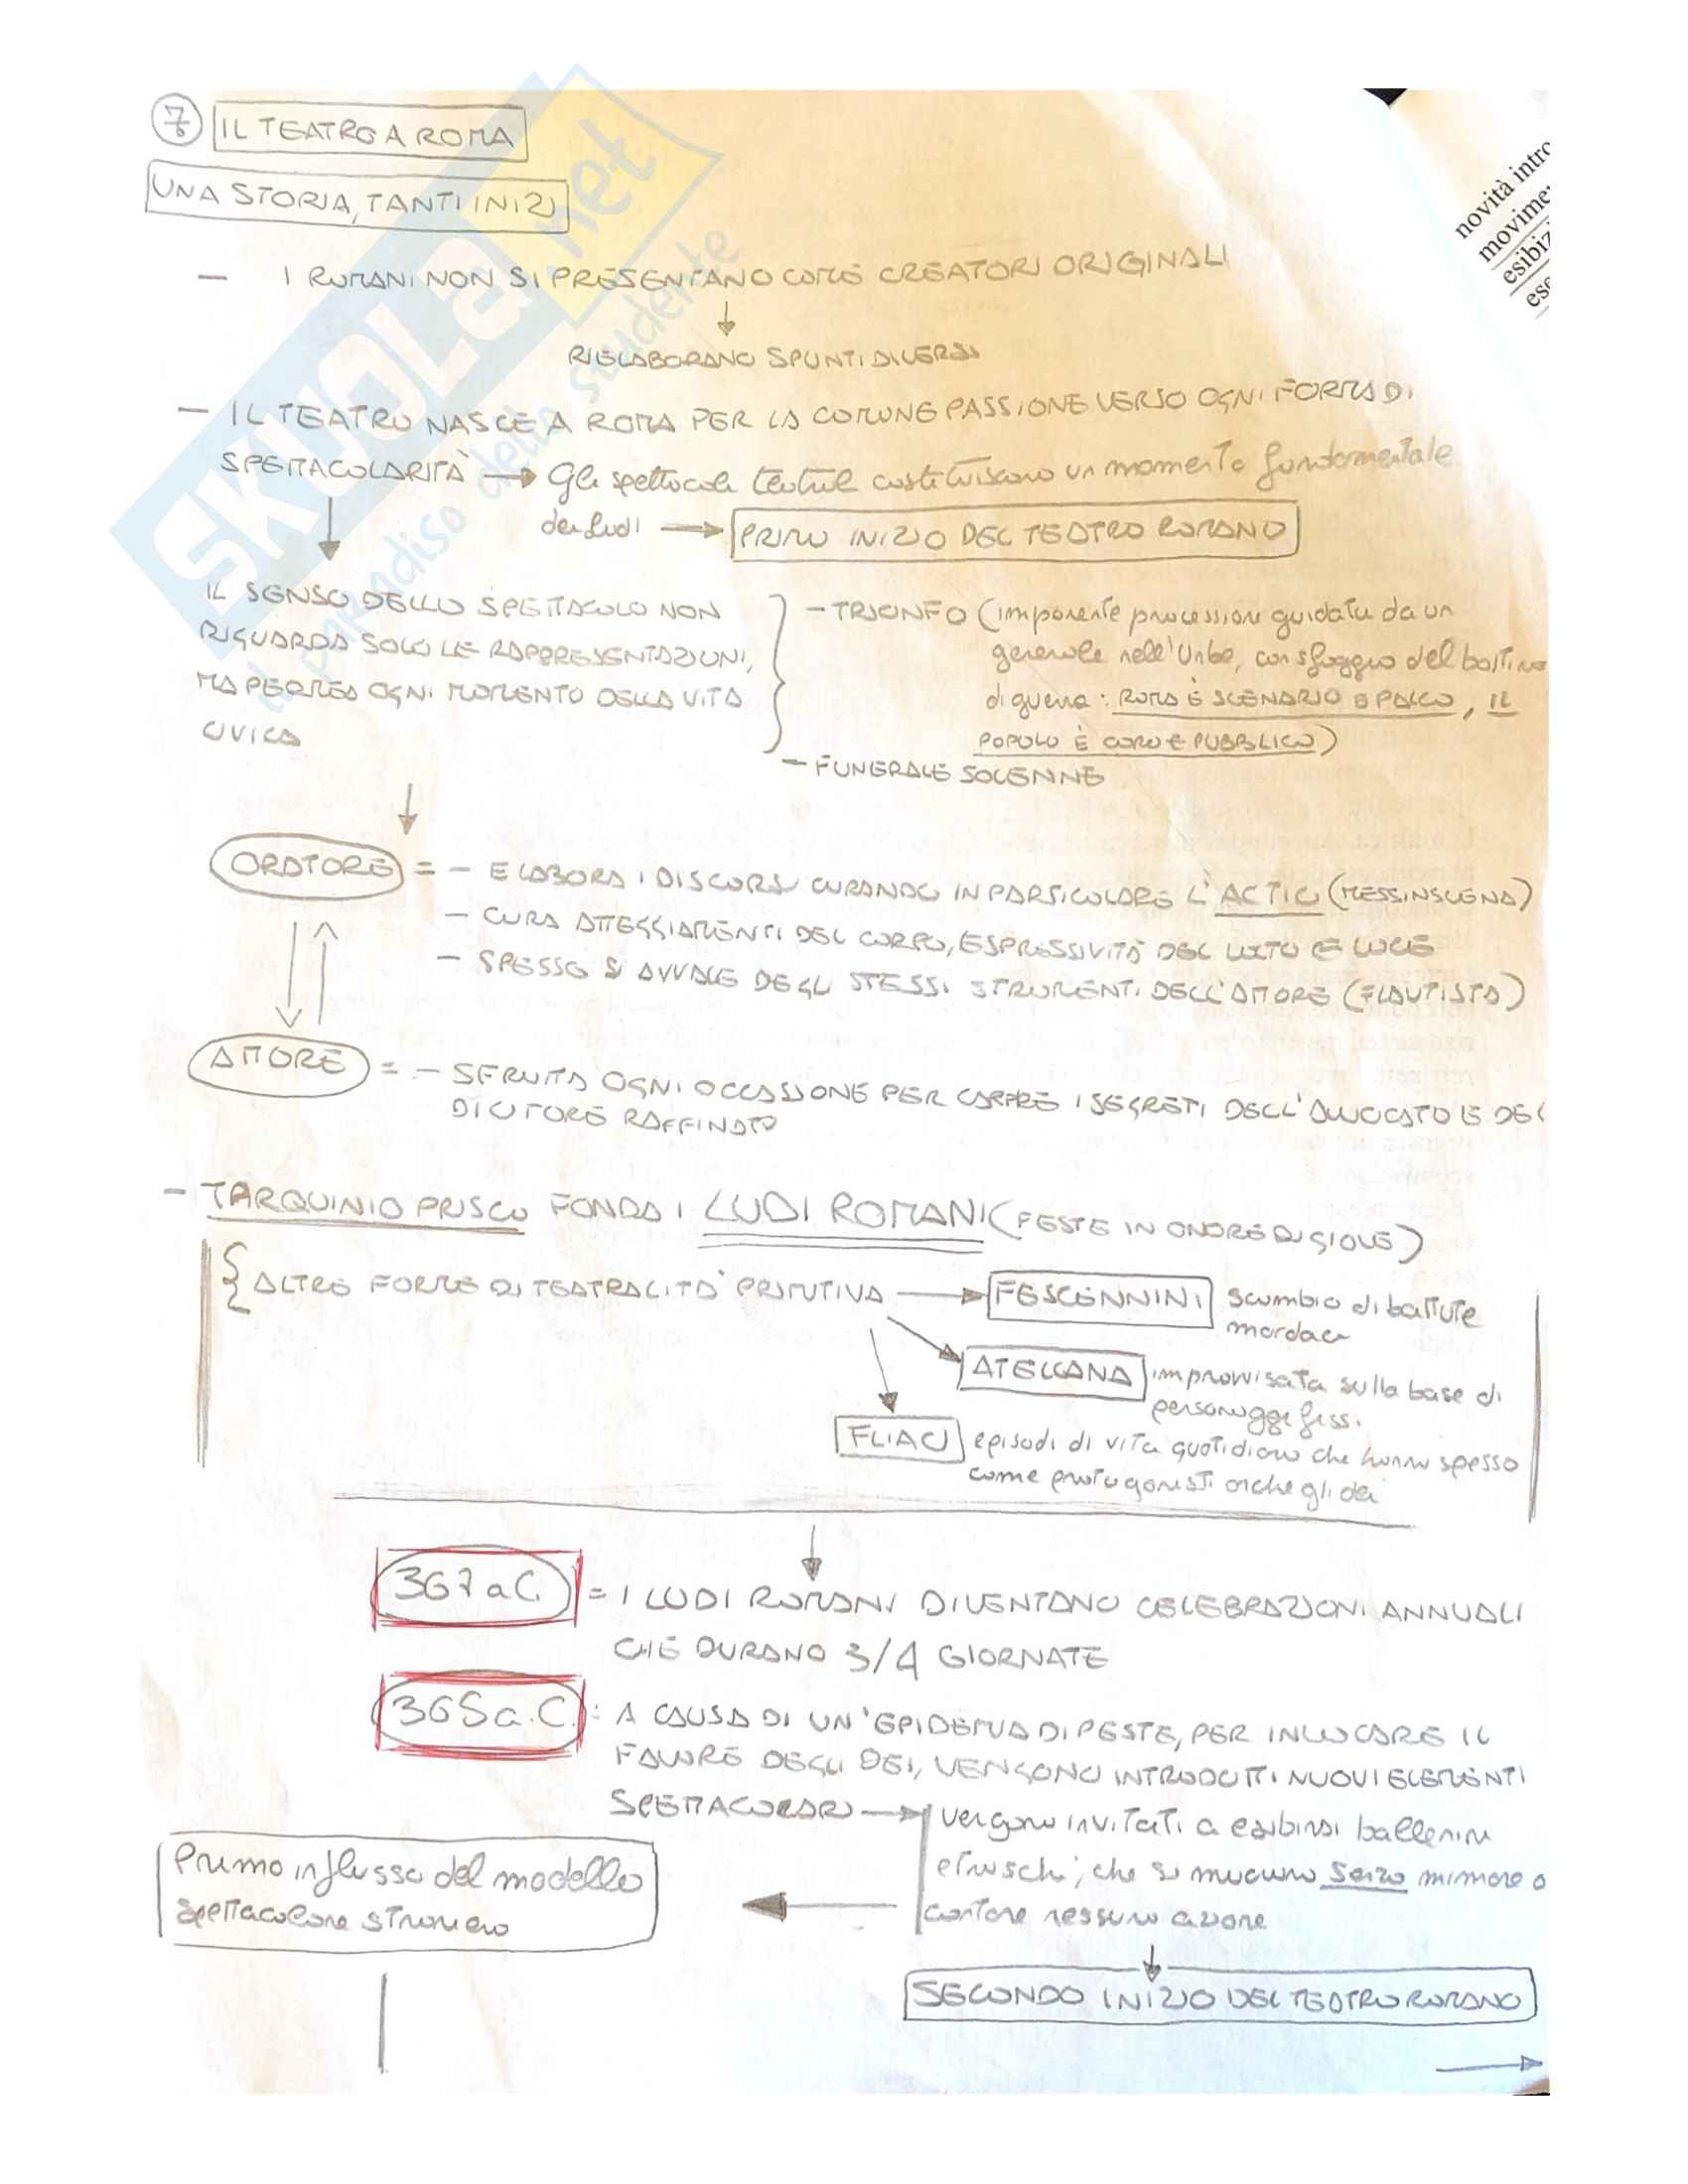 7 IL TEATRO A ROMA
UNA STORIA, TANTI INIZI
novità intro
movime
esibiz
ese
SKUOLA.net
il paradiso dello studente
— I ROMANI NON SI PRESENTANO COME CREATORI ORIGINALI
RIELABORANO SPUNTI DIVERSI
— IL TEATRO NASCE A ROMA PER LA COMUNE PASSIONE VERSO OGNI FORMA DI
SPETTACOLARITÀ → Gli spettacoli teatrali costituiscono un momento fondamentale
dei ludi → PRIMO INIZIO DEL TEATRO ROMANO
IL SENSO DELLO SPETTACOLO NON
RIGUARDA SOLO LE RAPPRESENTAZIONI,
MA PERMEA OGNI MOMENTO DELLA VITA
CIVICA
— TRIONFO (imponente processione guidata da un
generale nell'Urbe, con sfoggio del bottino
di guerra: ROMA È SCENARIO E PALCO, IL
POPOLO È CORO E PUBBLICO)
— FUNERALE SOLENNE
ORATORE = — ELABORA I DISCORSI CURANDO IN PARTICOLARE L'ACTIO (MESSINSCENA)
— CURA ATTEGGIAMENTI DEL CORPO, ESPRESSIVITÀ DEL VOLTO E VOCE
— SPESSO SI AVVALE DEGLI STESSI STRUMENTI DELL'ATTORE (FLAUTISTA)
ATTORE = — SFRUTTA OGNI OCCASIONE PER CARPIRE I SEGRETI DELL'AVVOCATO E DEL
DICITORE RAFFINATO
— TARQUINIO PRISCO FONDA I LUDI ROMANI (FESTE IN ONORE DI GIOVE)
ALTRE FORME DI TEATRALITÀ PRIMITIVA → FESCENNINI scambio di battute
mordaci
ATELLANA improvvisata sulla base di
personaggi fissi
FLIACI episodi di vita quotidiana che hanno spesso
come protagonisti anche gli dei
367 a.C. = I LUDI ROMANI DIVENTANO CELEBRAZIONI ANNUALI
CHE DURANO 3/4 GIORNATE
365 a.C. : A CAUSA DI UN'EPIDEMIA DI PESTE, PER INVOCARE IL
FAVORE DEGLI DEI, VENGONO INTRODOTTI NUOVI ELEMENTI
SPETTACOLARI → vengono invitati a esibirsi ballerini
etruschi, che si muovono senza mimare o
cantare nessuna azione
Primo influsso del modello
spettacolare straniero
SECONDO INIZIO DEL TEATRO ROMANO